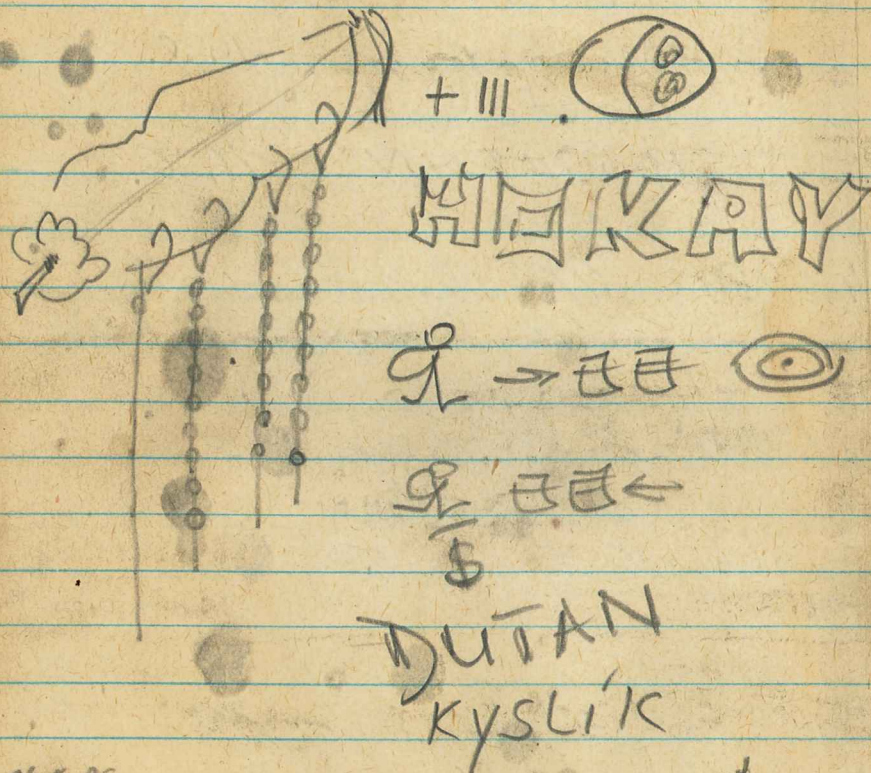 + III
HEKAY
→
←
$
DUTAN
KYSLÍK